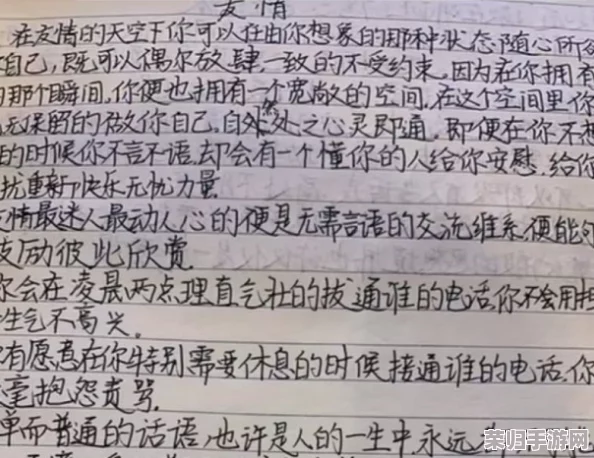 友情
在友情的天空下你可以任由你想象的那种状态,随心所
自己,既可以偶尔放肆一致的不受约束,因为在你拥有
的那个瞬间,你便也拥有一个宽敞的空间,在这个空间里你
无保留的做你自己,自然处之心灵即通,即便在你不想
的时候你不言不语却会有一个懂你的人给你安慰,给你
扰重新快乐无忧力量
情最迷人最动人心的便是无需言语的交流维系,便能
鼓励彼此欣赏.
你会在凌晨两点理直气壮的拨通谁的电话,你不会用担
生气不高兴.
有愿意在你特别需要休息的时候接通谁的电话,你
毫抱怨责骂.
单而普通的话语,也许是人的一生中永远
荣归手游网